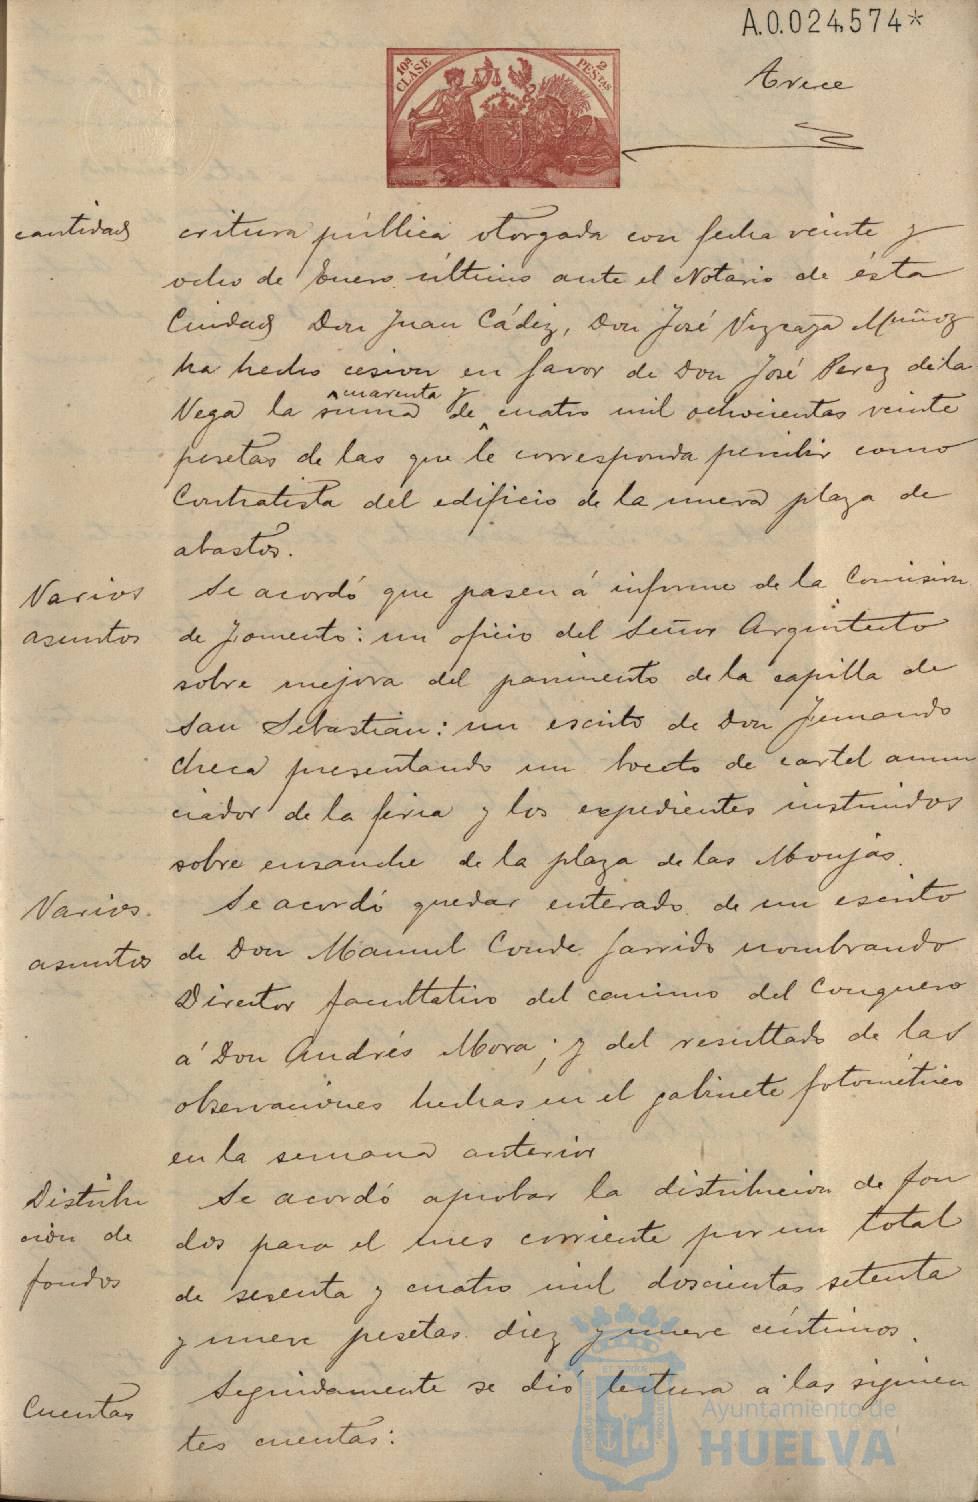 A.0.024,574*
10ª CLASE
2 PESTAS
Trece
cantidad
critura pública otorgada con fecha veinte y
ocho de Enero último ante el Notario de ésta
Ciudad Don Juan Cádiz, Don José Vizcaya Muñoz
ha hecho cesion en favor de Don José Perez de la
cuarenta y
Vega la suma de cuatro mil ochocientas veinte
pesetas de las que le corresponda percibir como
Contratista del edificio de la nueva plaza de
abastos.
Varios
asuntos
Se acordó que pasen á informe de la Comision
de Fomento: un oficio del Señor Arquitecto
sobre mejora del pavimento de la capilla de
San Sebastian: un escrito de Don Fernando
Checa presentando un boceto de cartel anun
ciador de la feria y los expedientes instruidos
sobre ensanche de la plaza de las Monjas.
Varios
asuntos
Se acordó quedar enterado de un escrito
de Don Manuel Conde Garrido nombrando
Director facultativo del camino del Conquero
á Don Andrés Mora; y del resultado de las
observaciones hechas en el gabinete fotométrico
en la semana anterior
Distribu
ción de
fondos
Se acordó aprobar la distribucion de fon
dos para el mes corriente por un total
de sesenta y cuatro mil doscientas setenta
y nueve pesetas diez y nueve céntimos.
Cuentas
Seguidamente se dió lectura á las siguien
tes cuentas:
Ayuntamiento de
HUELVA